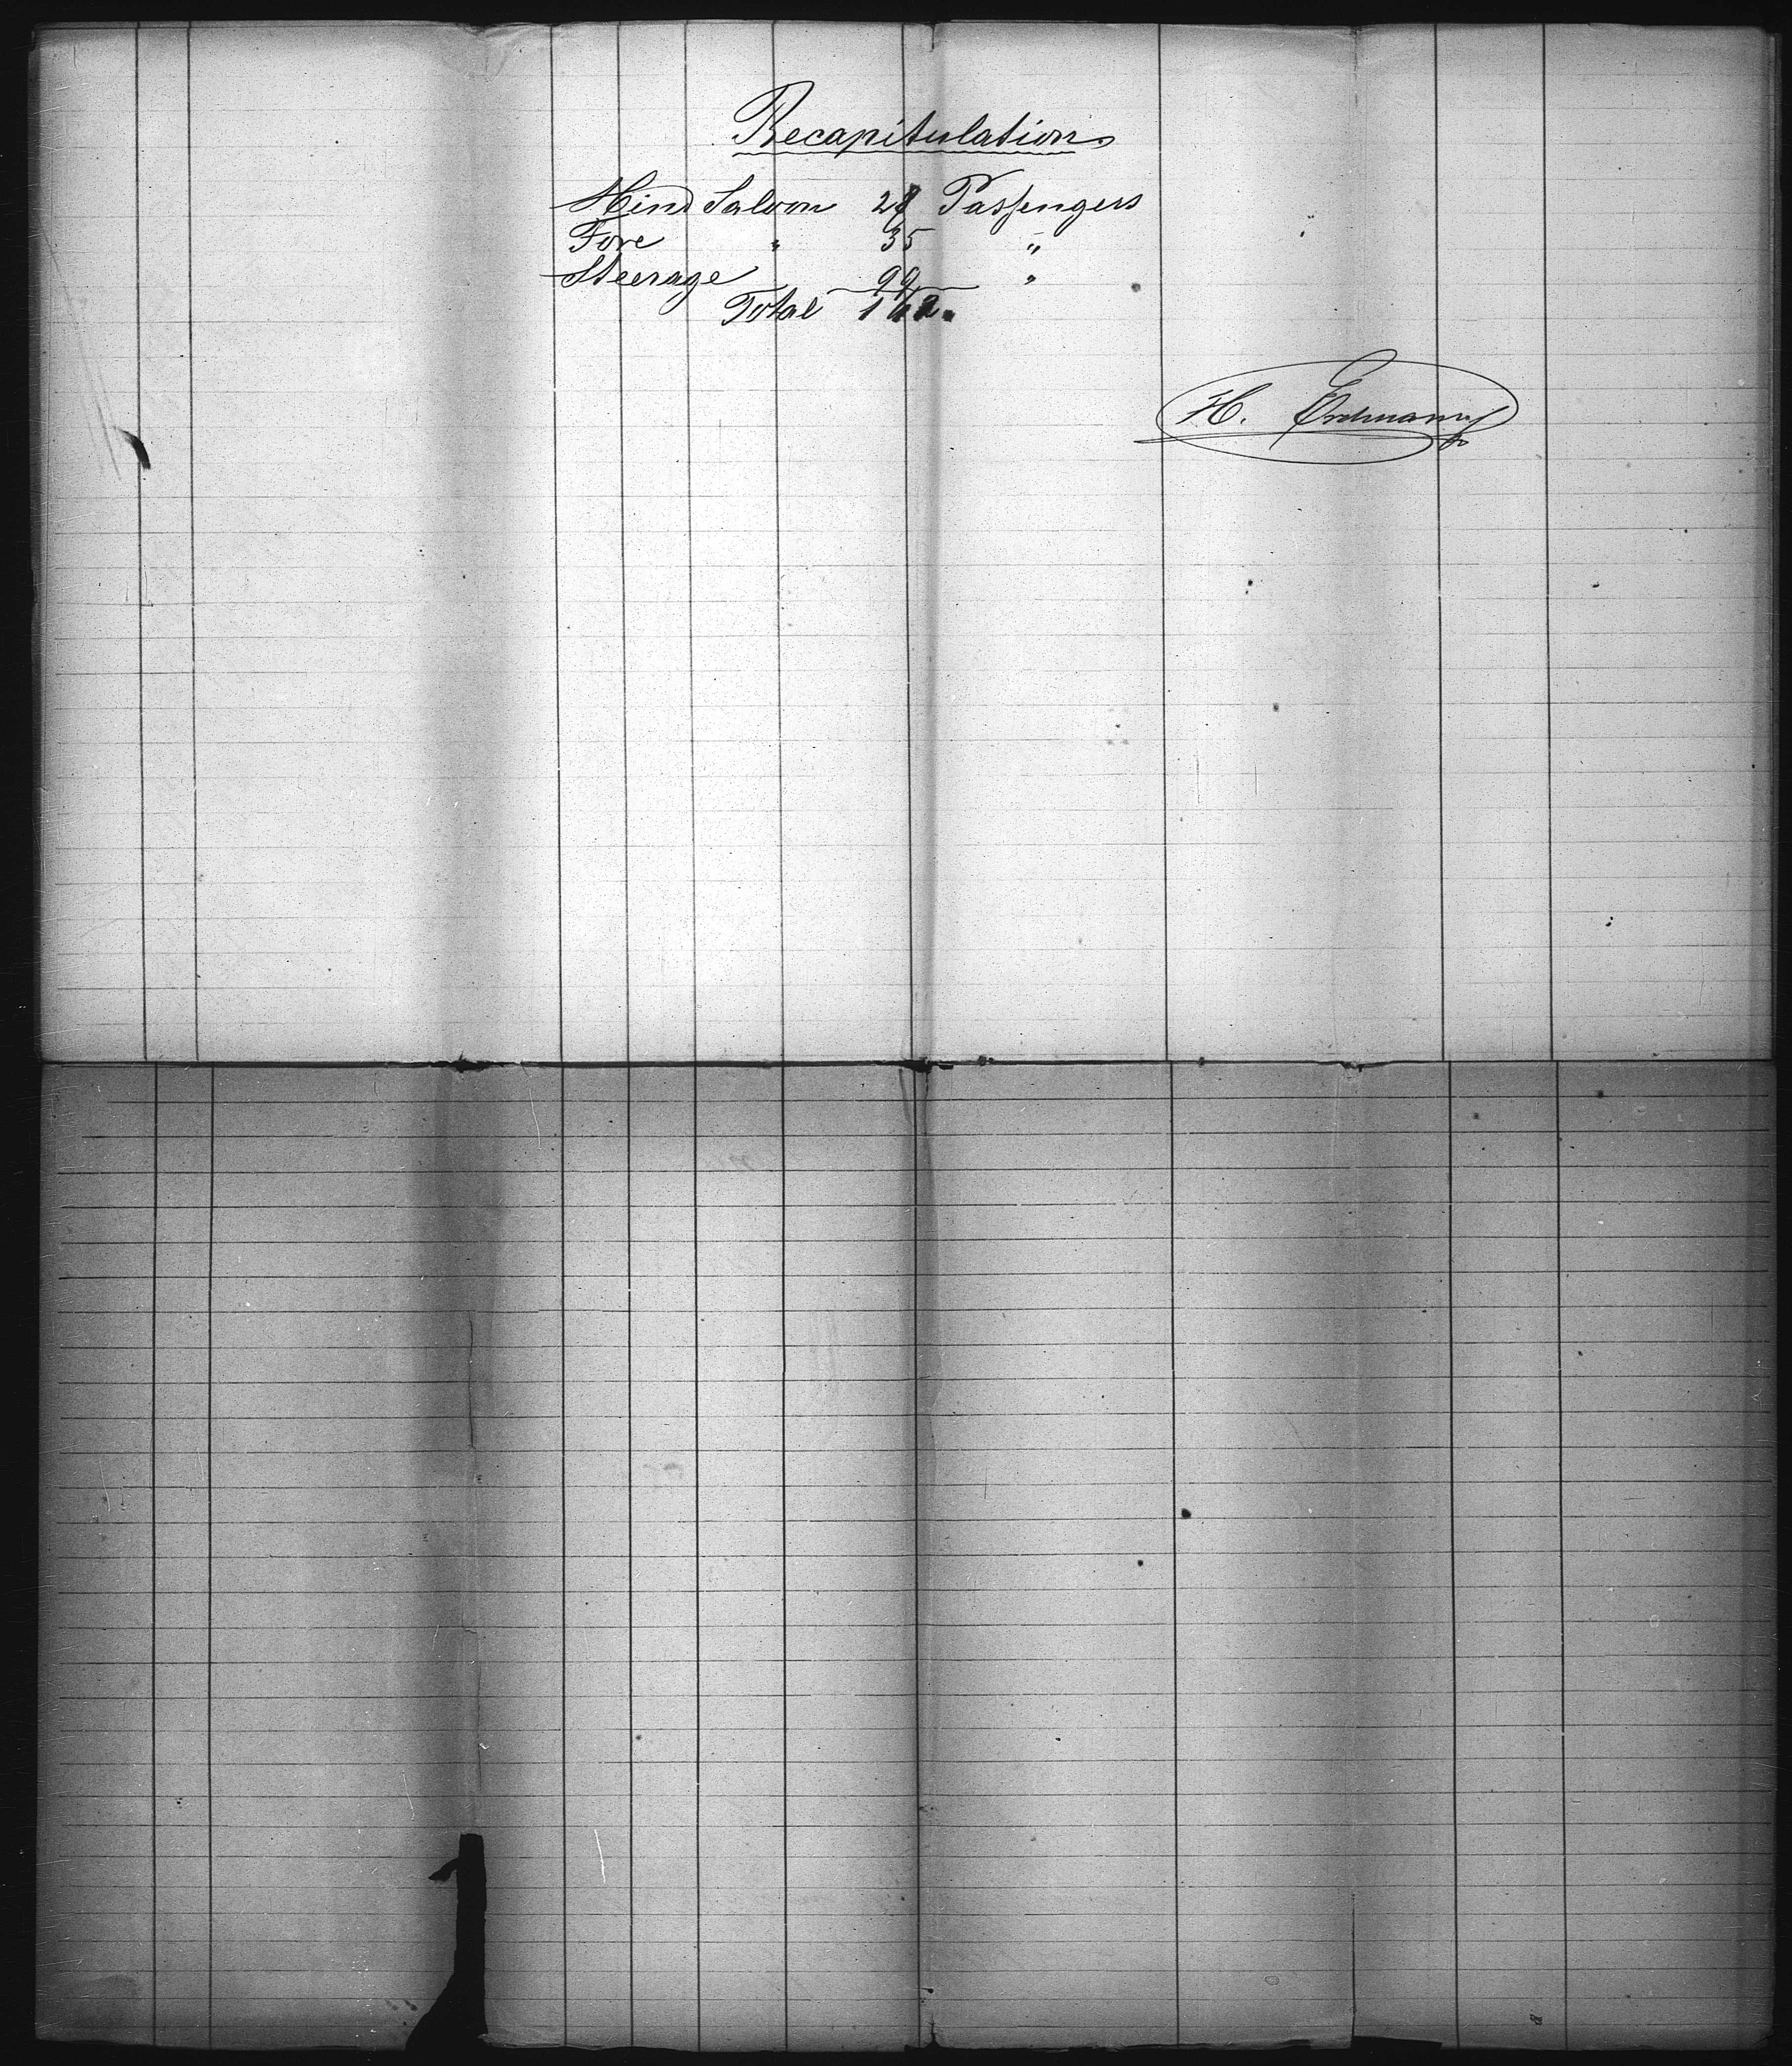 Recapitulation
Hind Saloon 28 Passengers
Fore " 35 "
Steerage 99 "
Total 162.
H. Erdmann